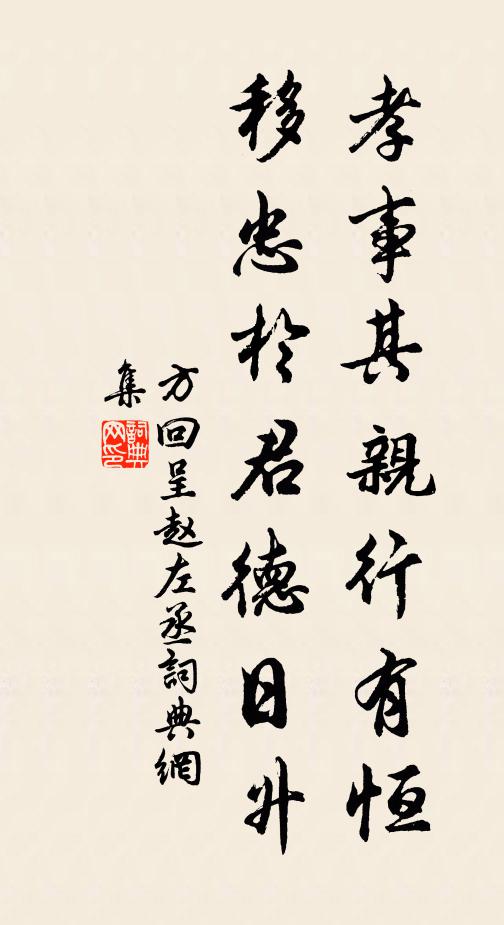 孝事其親行有恒
移忠於君德日升
方回呈赵左丞詞典網
集
詞典网印